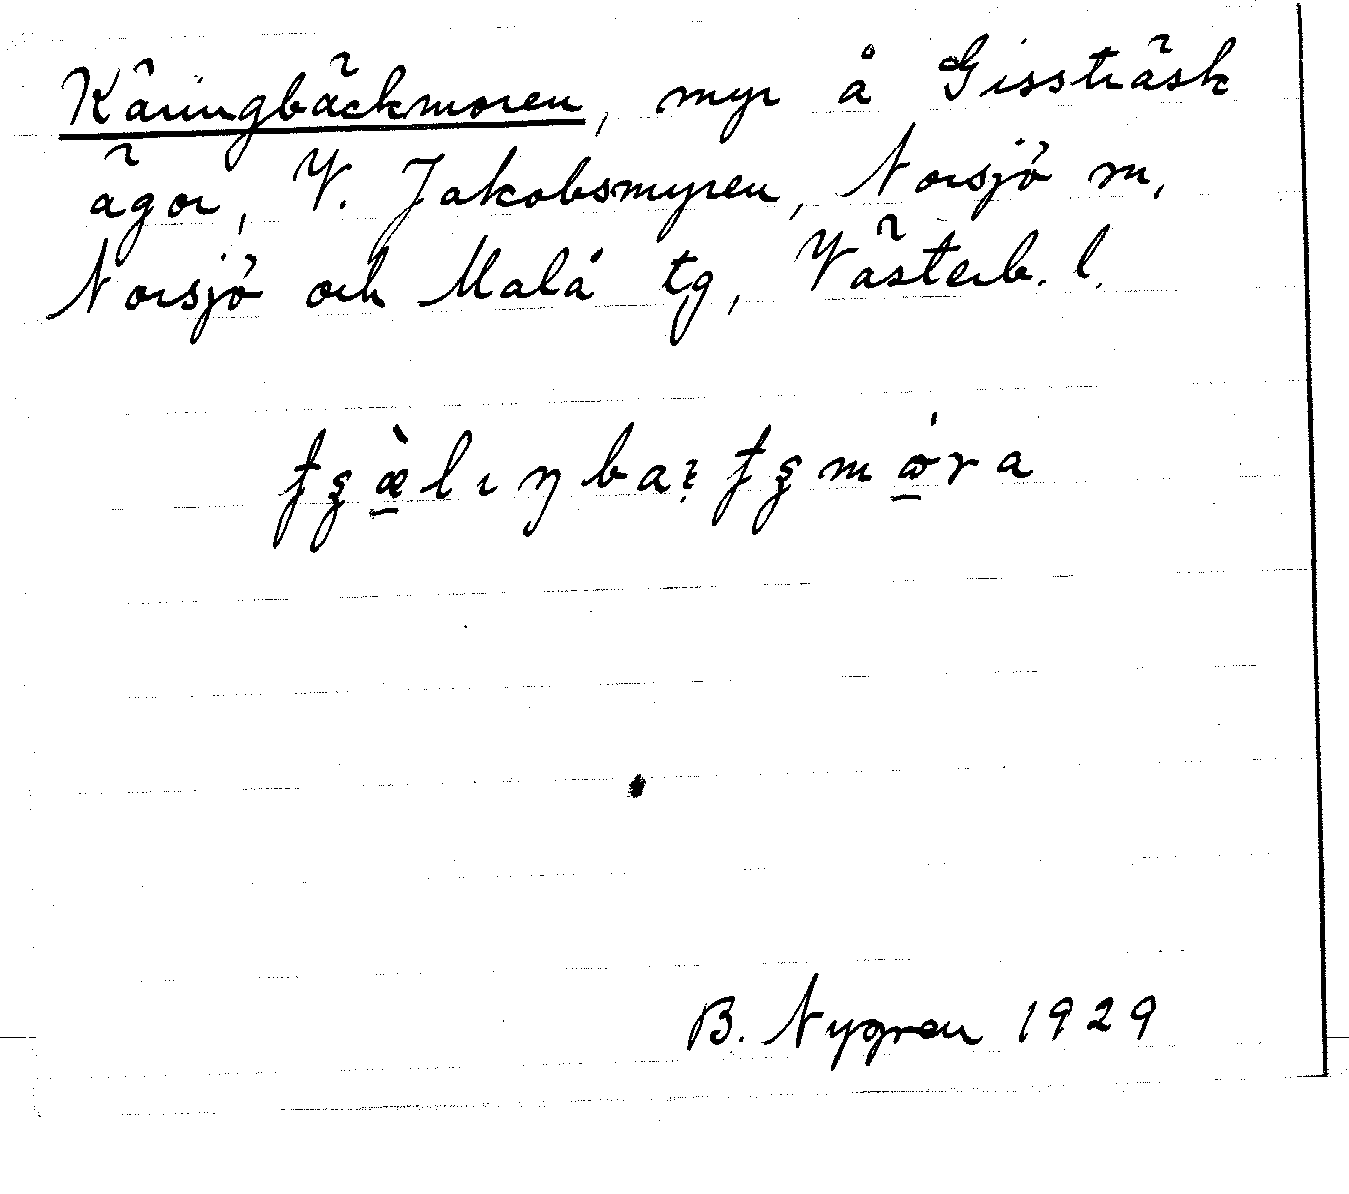 Käringbäckmoren, myr å Gissträsk
ägor, V. Jakobsmyren, Norsjö sn,
Norsjö och Malå tg, Västerb. l.
B. Nygren 1929